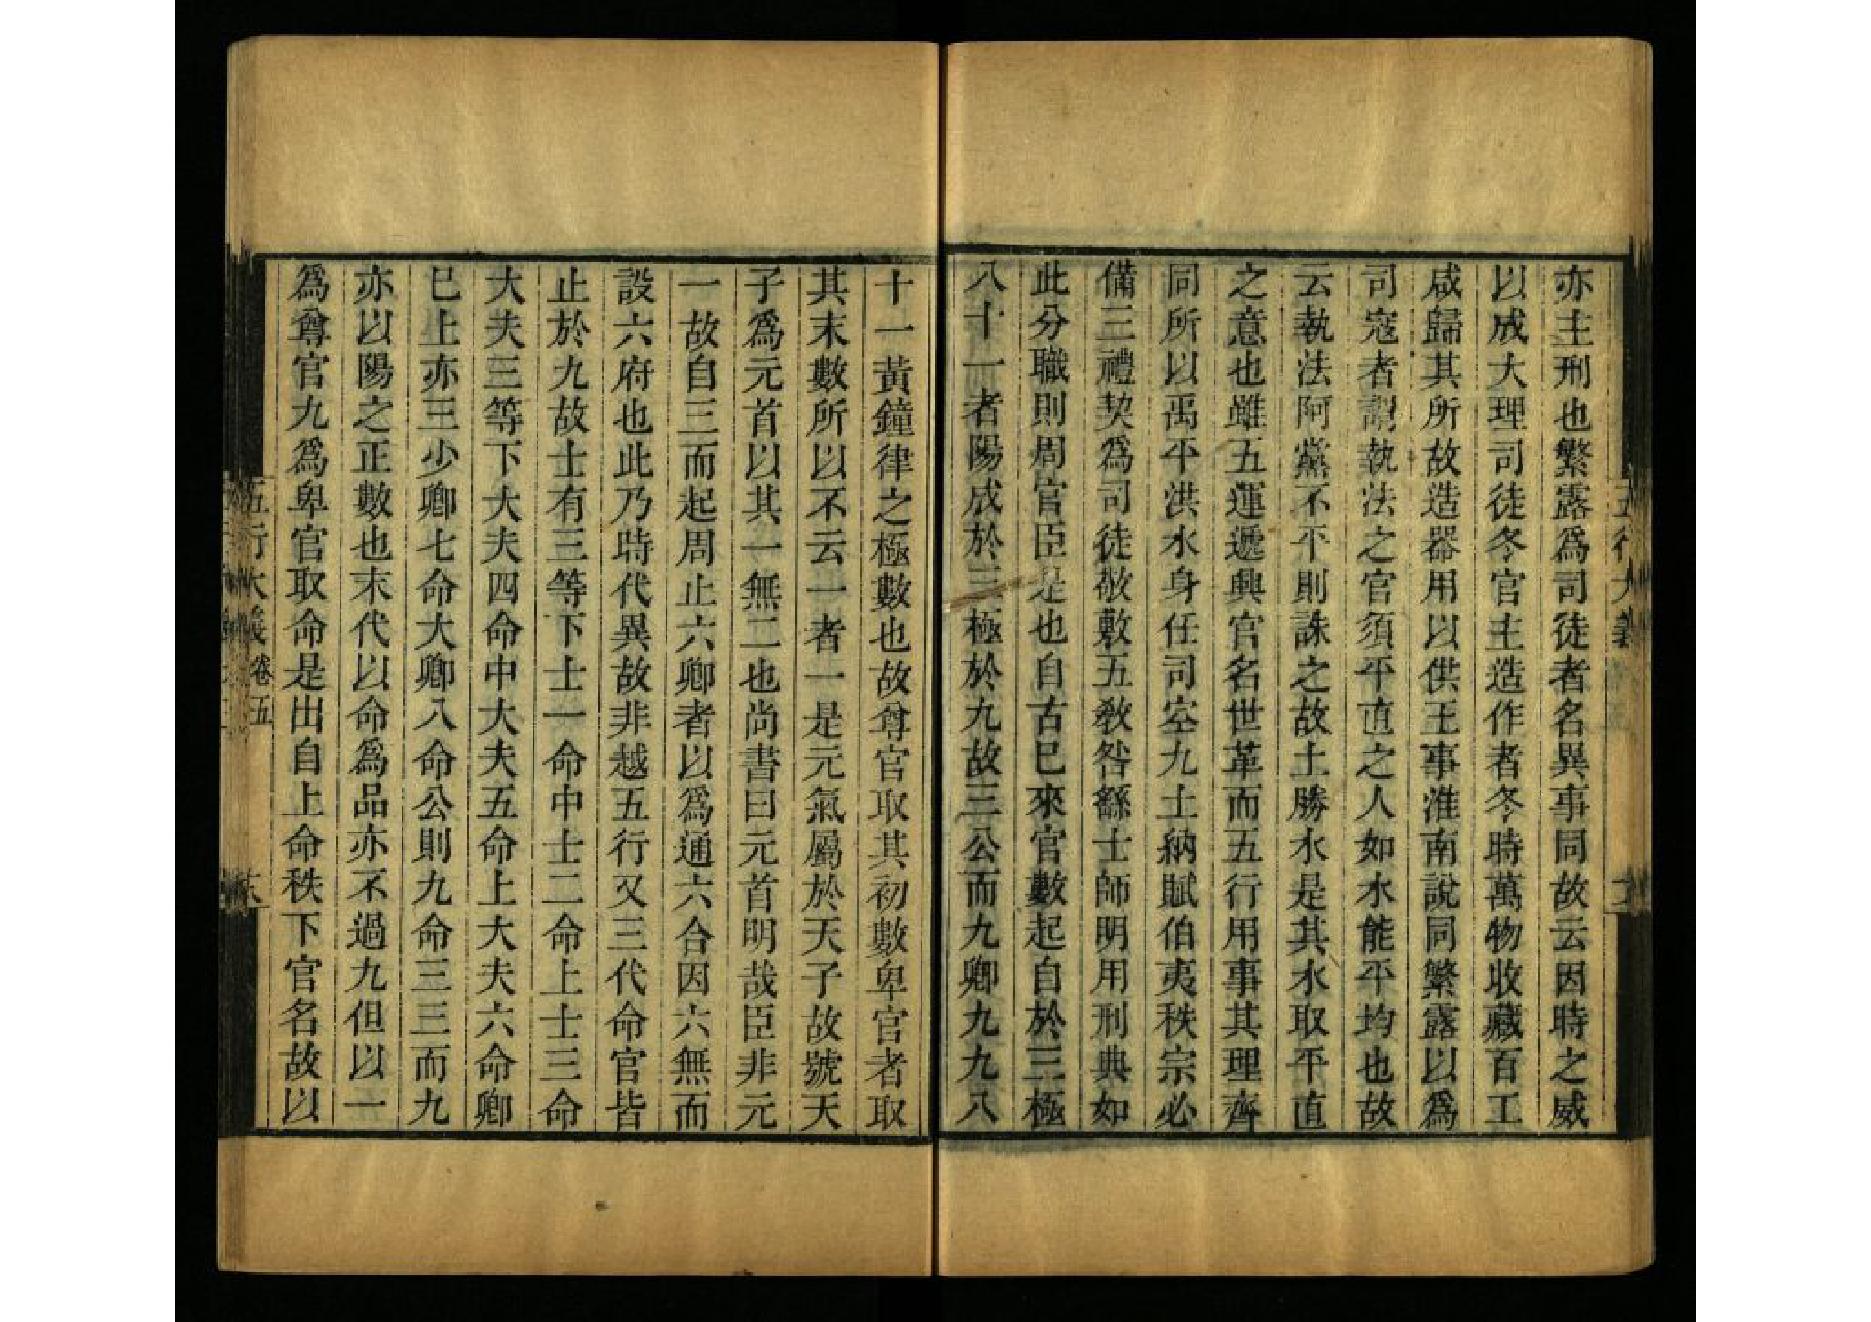 亦主刑也繁露爲司徒者名異事同故云因時之威
以成大理司徒冬官主造作者冬時萬物收藏百工
咸歸其所故造器用以供王事淮南說同繁露以爲
司寇者謂執法之官須平直之人如水能平均也故
云執法阿黨不平則誅之故土勝水是其水取平直
之意也雖五運遞興官名世革而五行用事其理齊
同所以禹平洪水身任司空九土納賦伯夷秩宗必
備三禮契爲司徒敬敷五敎咎繇士師明用刑典如
此分職則周官臣是也自古巳來官數起自於三極
八十一者陽成於三極於九故三公而九卿九九八
十一黃鐘律之極數也故尊官取其初數卑官者取
其末數所以不云一者一是元氣屬於天子故號天
子爲元首以其一無二也尚書曰元首明哉臣非元
一故自三而起周止六卿者以爲通六合因六無而
設六府也此乃時代異故非越五行又三代命官皆
止於九故士有三等下士一命中士二命上士三命
大夫三等下大夫四命中大夫五命上大夫六命卿
巳上亦三少卿七命大卿八命公則九命三三而九
亦以陽之正數也末代以命爲品亦不過九但以一
爲尊官九爲卑官取命是出自上命秩下官名故以
五行大義 卷五